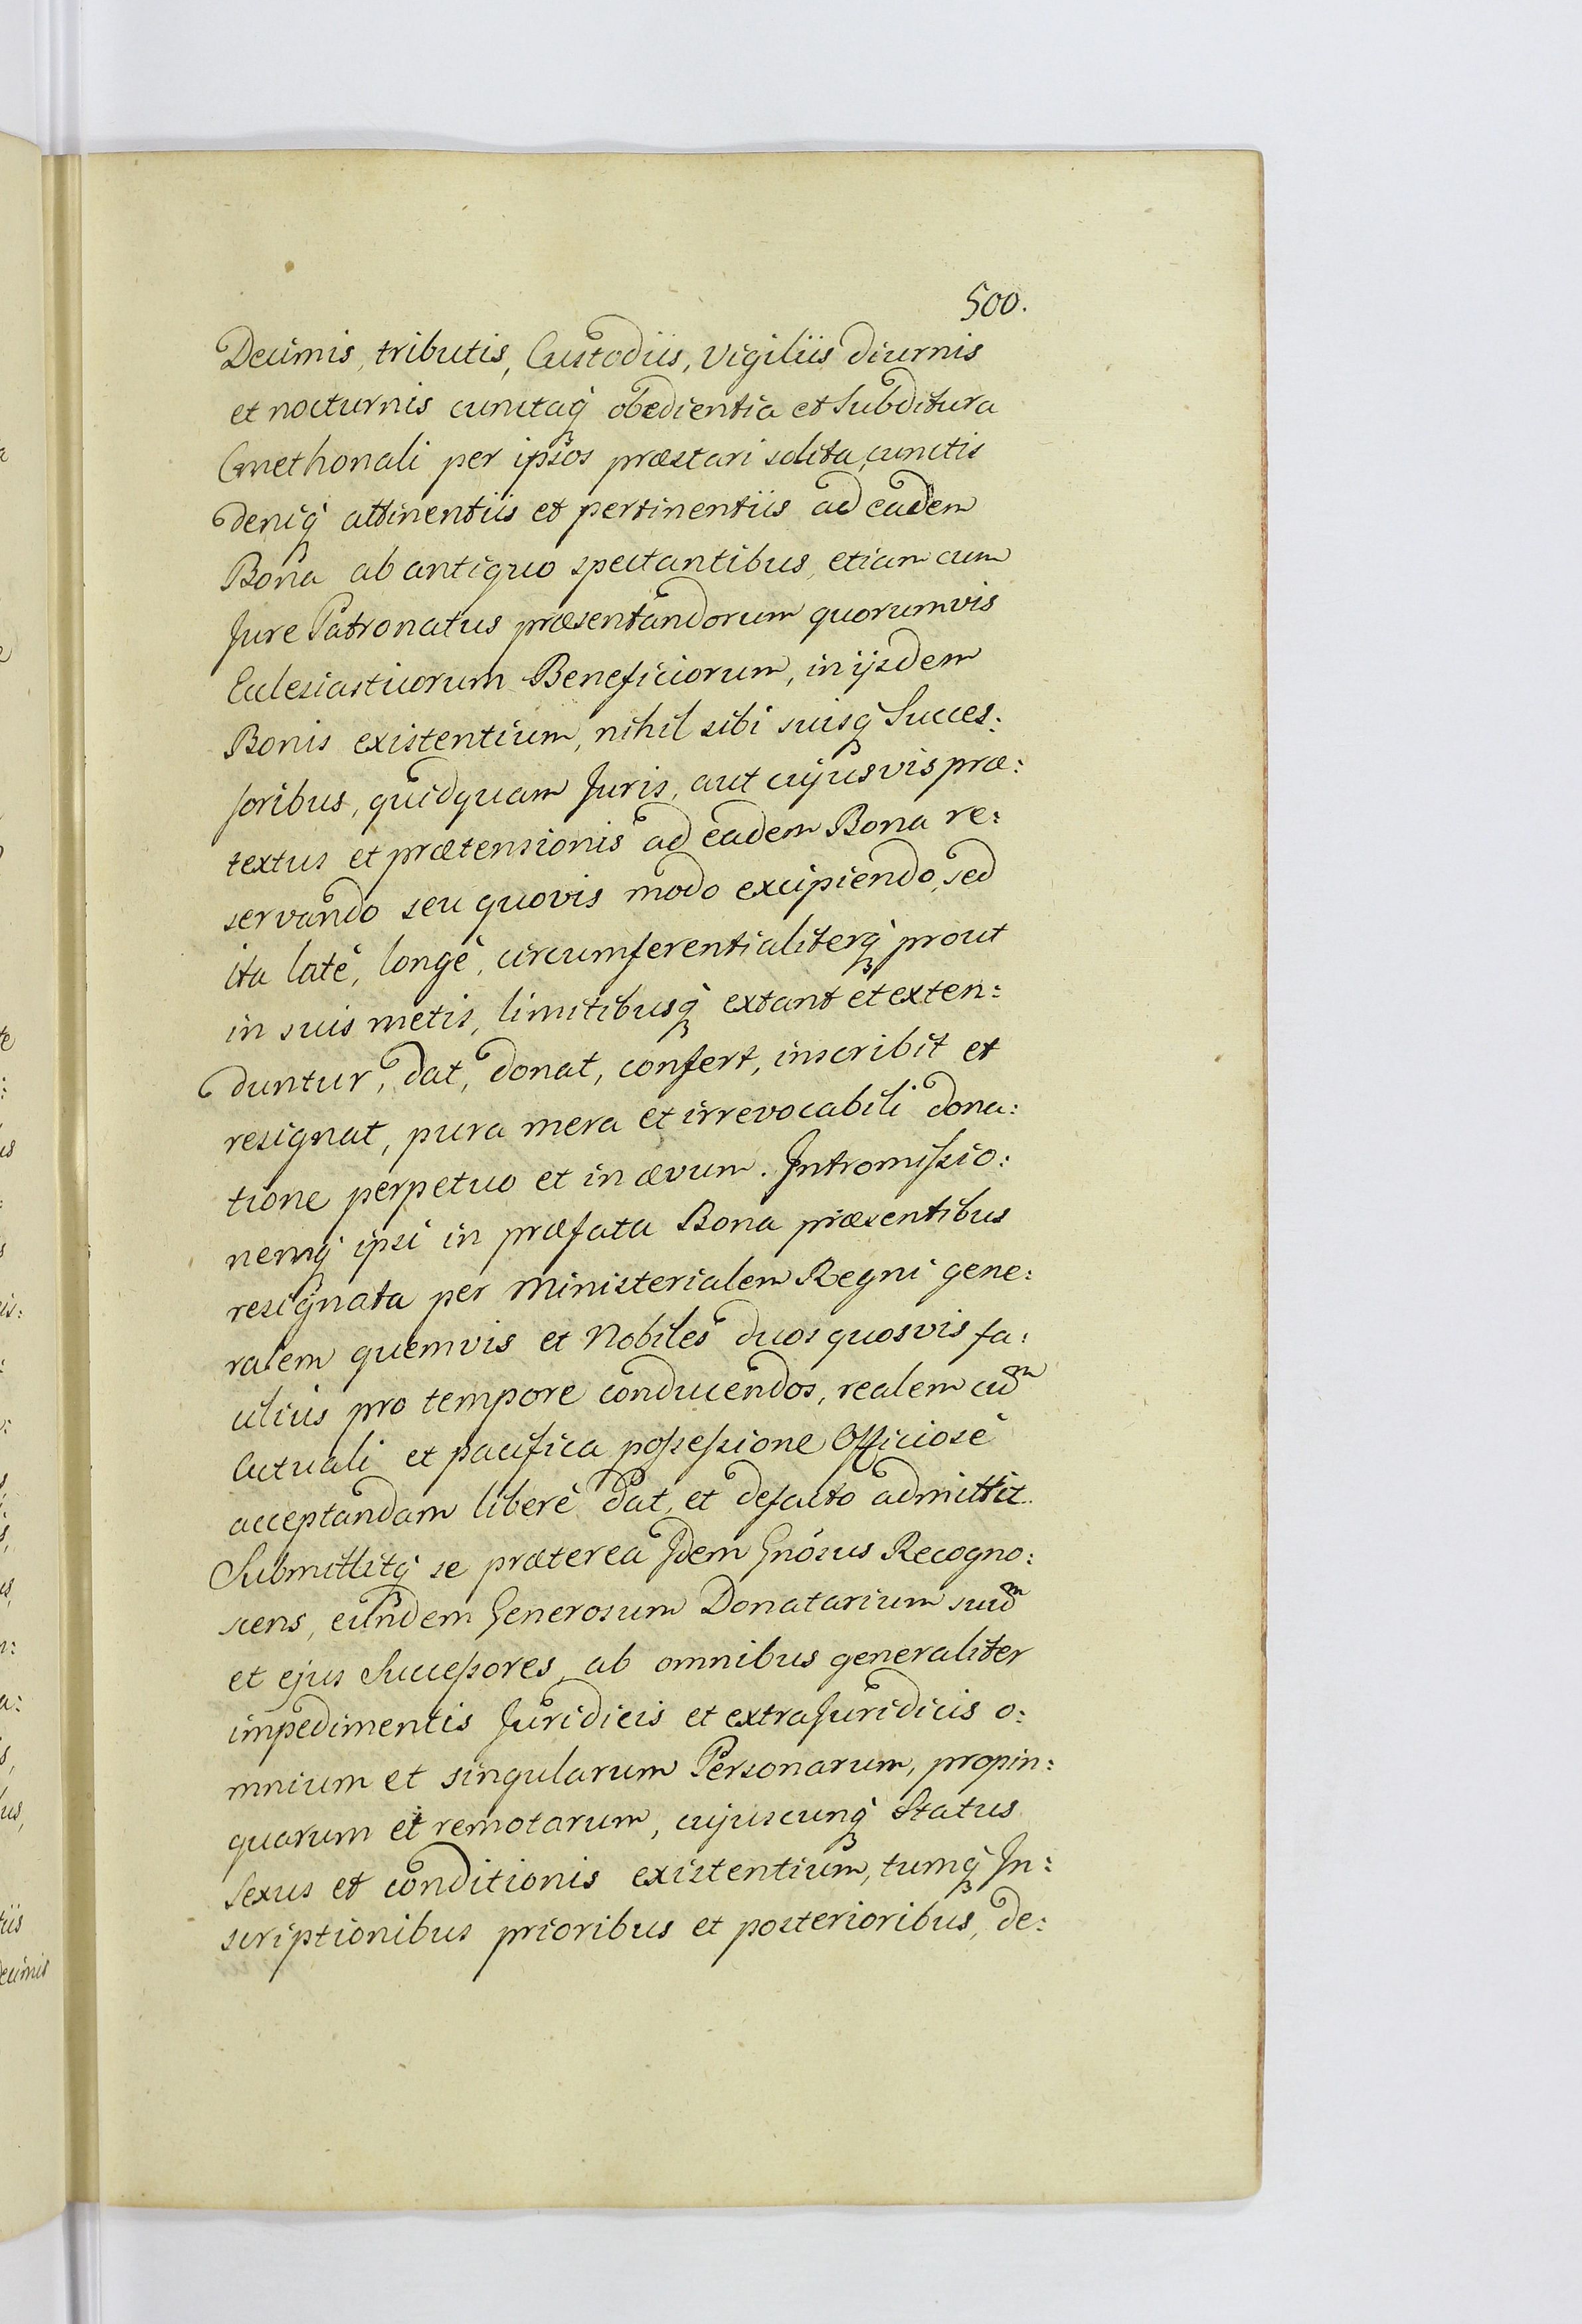 500.
Decimis, tributis, Custodiis, Vigiliis diurnis
et nocturnis cunctaq̃ obedientia et Subditura
Cmethonali per ipsos præstari solita, cunctis
deniq̃ attinentiis et pertinentiis ad eadem
Bona ab antiquo spectantibus, etiam cum
Jure Patronatus præsentandorum quorumvis
Ecclesiasticorum Beneficiorum, in ijsdem
Bonis existentium, nihil sibi suisq̃ Succes:
soribus, quidquam Juris, aut cujusvis præ:
textus et prætensionis ad eadem Bona re:
servando seu quovis modo excipiendo, sed
ita latè, longè, circumferentialiterq̃ prout
in suis metis, limitibusq̃ extant et exten:
duntur, dat, donat, confert, inscribit et
resignat, pura mera et irrevocabili dona:
tione perpetuo et in ævum. Intromissio:
nemq̃ ipsi in præfata Bona præsentibus
resignata per Ministerialem Regni gene:
ralem quemvis et Nobiles duos quosvis fa:
cilius pro tempore conducendos, realem cuᵐ
Actuali et pacifica possessione Officiosè
acceptandam liberè dat, et defacto admittit.
Submittitq̃ se præterea Idem Gnósus Recogno:
scens, eundem Generosum Donatarium suuᵐ
et ejus Successores, ab omnibus generaliter
impedimentis Juridicis et extraJuridicis o:
mnium et singularum Personarum, propin:
quarum et remotarum, cujuscunq̃ Status
Sexus et conditionis existentium, tumq̃ In:
scriptionibus prioribus et posterioribus, de: